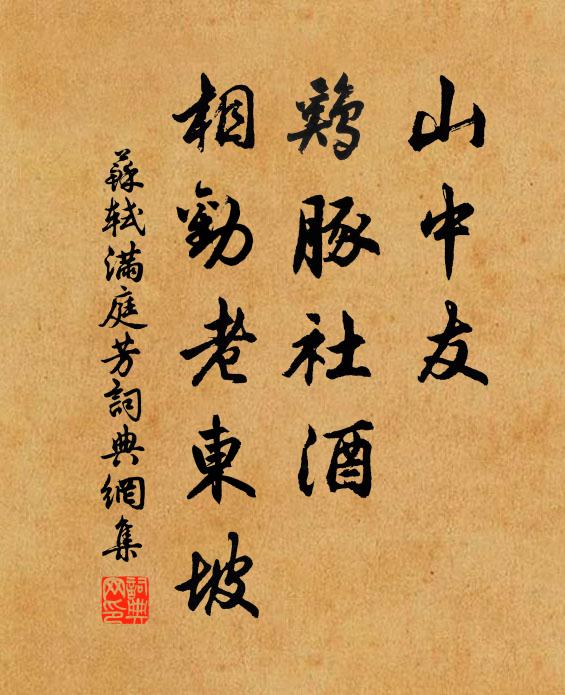 山中友
鷄豚社酒
相勸老東坡
蘇軾滿庭芳詞典網集
詞典网印